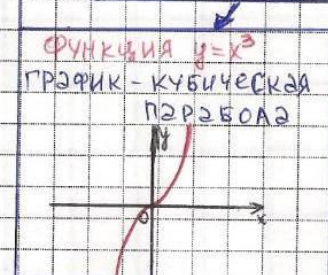 ФУНКЦИЯ y=x³
ГРАФИК - КУБИЧЕСКАЯ
ПАРАБОЛА
y
0
x